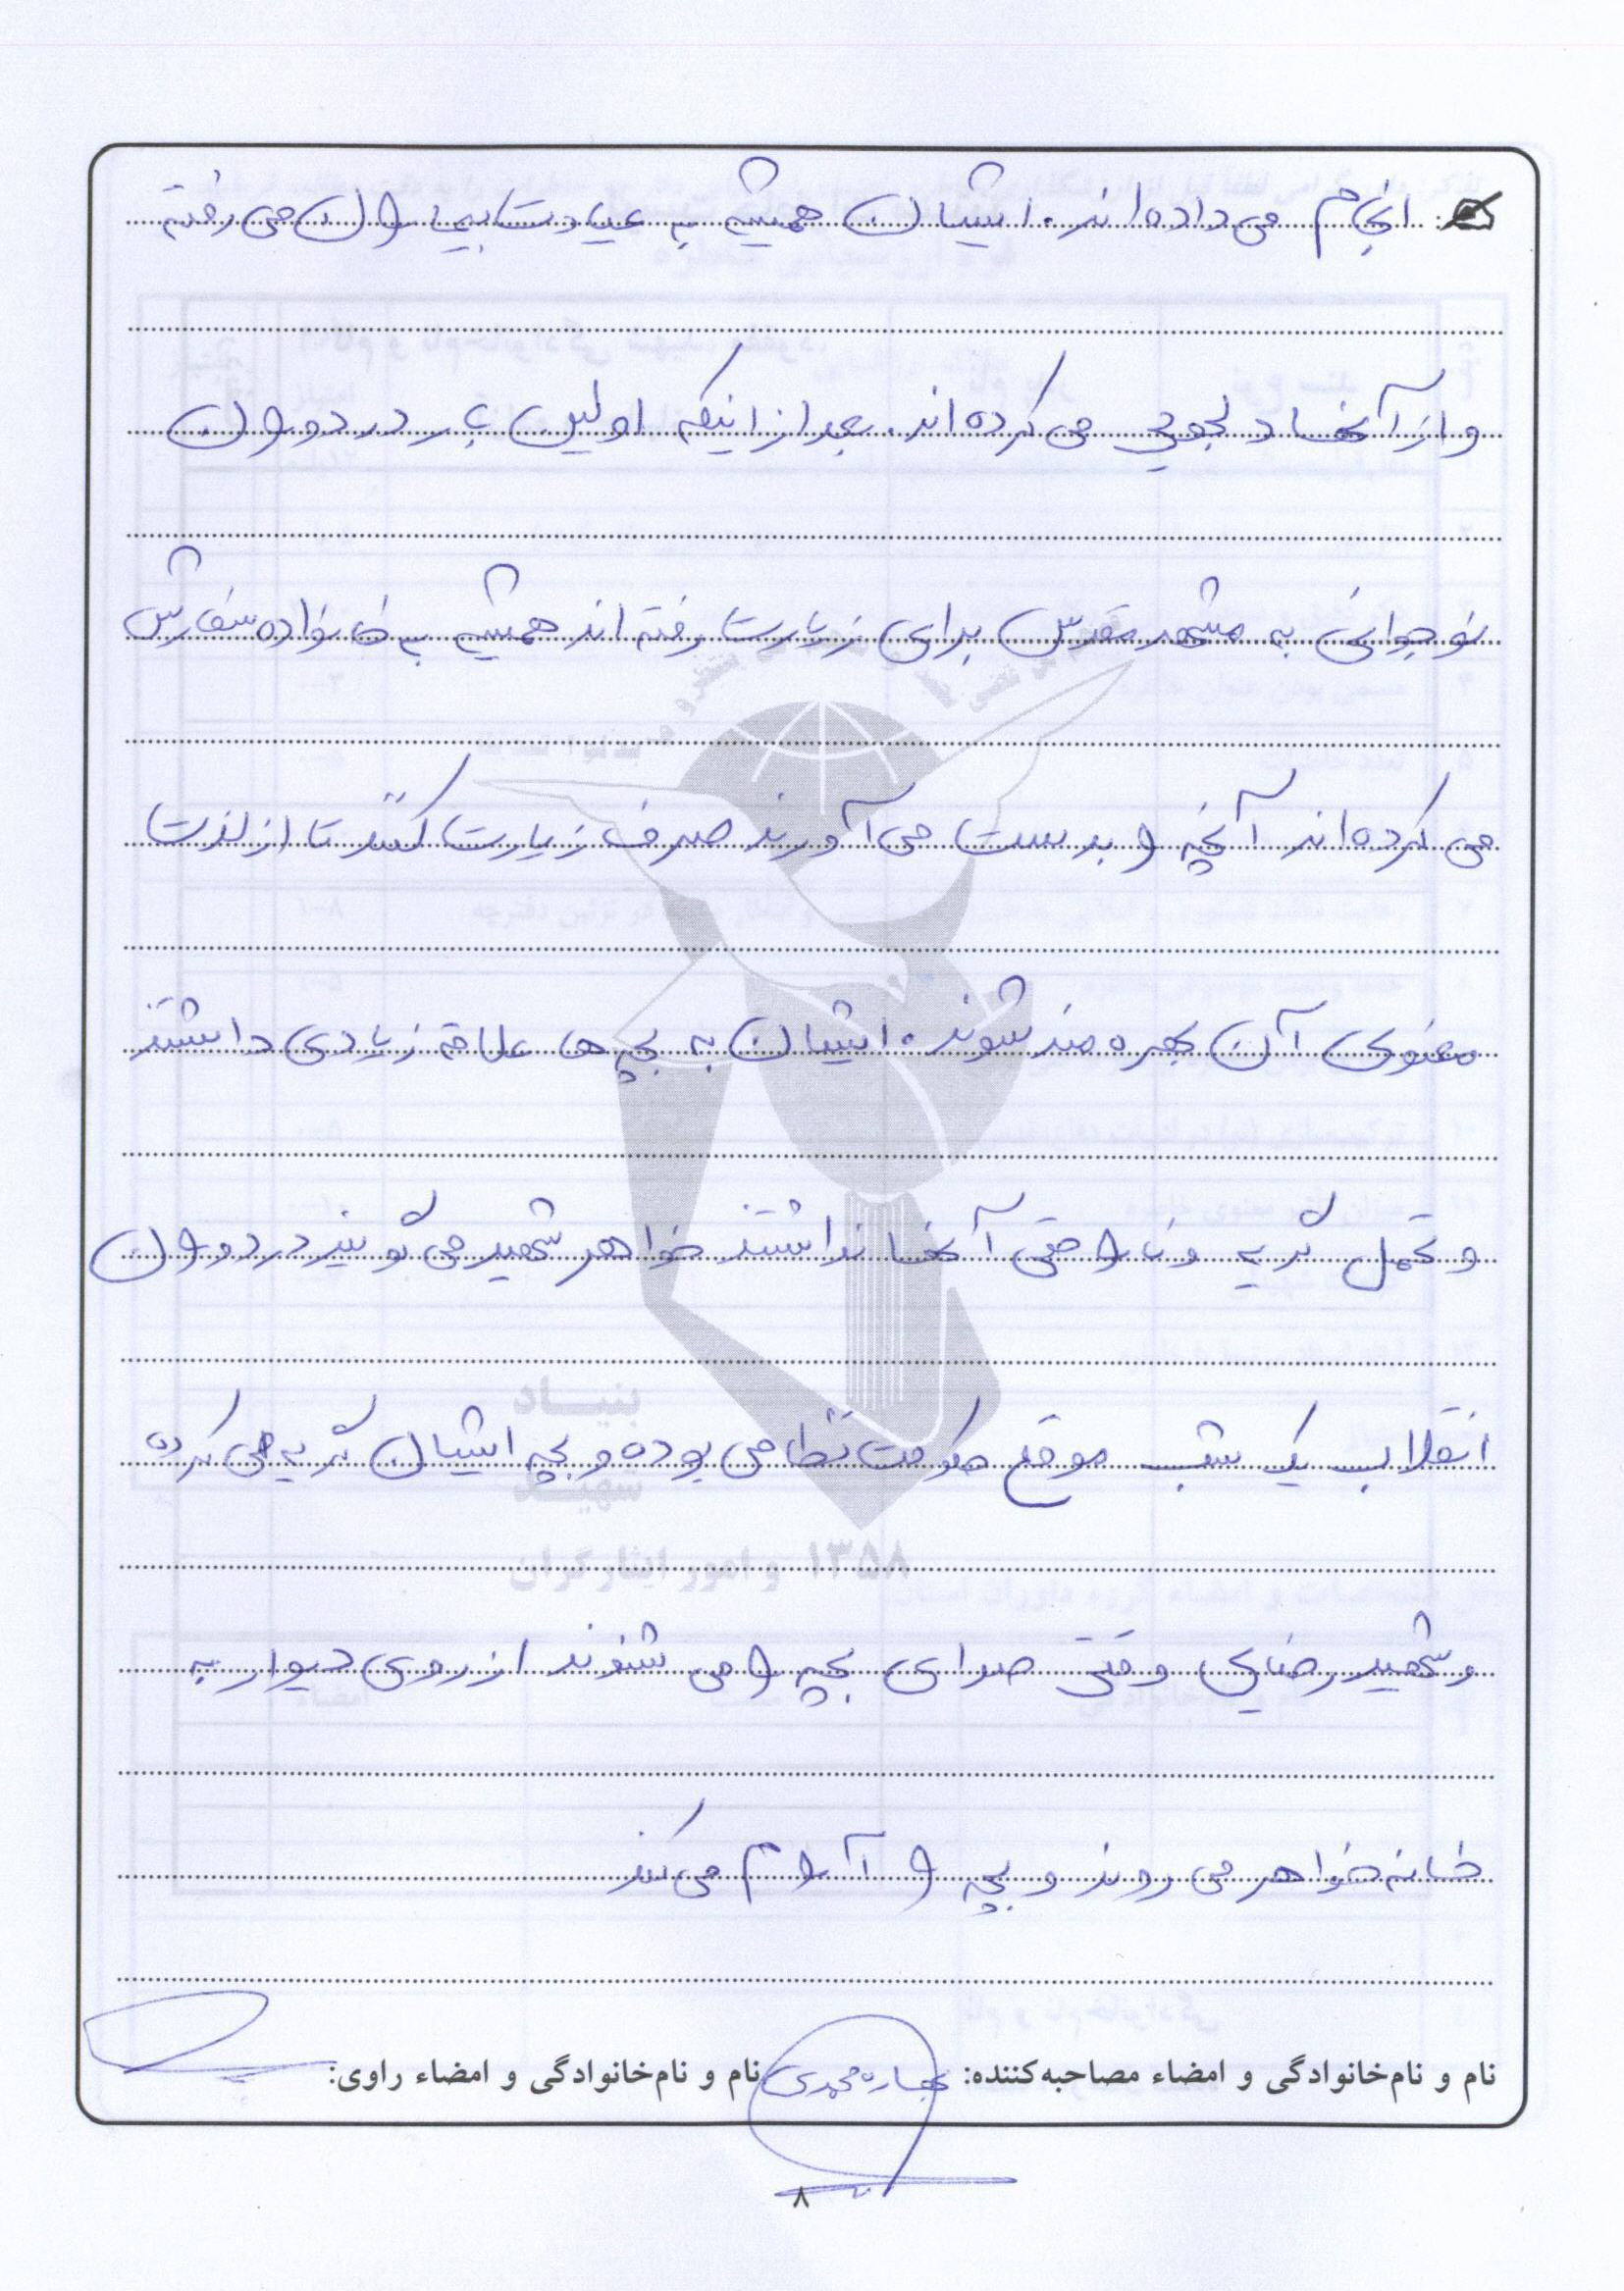 انجام می داده اند. ایشان همیشه به عیادت بیماران می رفته
و از آنها دلجویی می کرده اند. بعد از اینکه اولین بار در دوران
نوجوانی به مشهد مقدس برای زیارت رفته اند همیشه به خانواده سفارش
می کرده اند آنچه را بدست می آورند صرف زیارت کنند تا از لذت
معنوی آن بهره مند شوند. ایشان به بچه ها علاقه زیادی داشتند
و تحمل گریه و ناراحتی آنها نداشتند خواهر شهید می گویند در دوران
انقلاب یک شب موقع حکومت نظامی بوده و بچه ایشان گریه می کرده
و شهید رضایی وقتی صدای بچه را می شنوند از روی دیوار به
خانه خواهر می روند و بچه را آرام می کند
بنیاد
شهید
۱۳۵۸ و امور ایثارگران
نام و نام‌خانوادگی و امضاء مصاحبه‌کننده: محمدی نام و نام‌خانوادگی و امضاء راوی:
۸